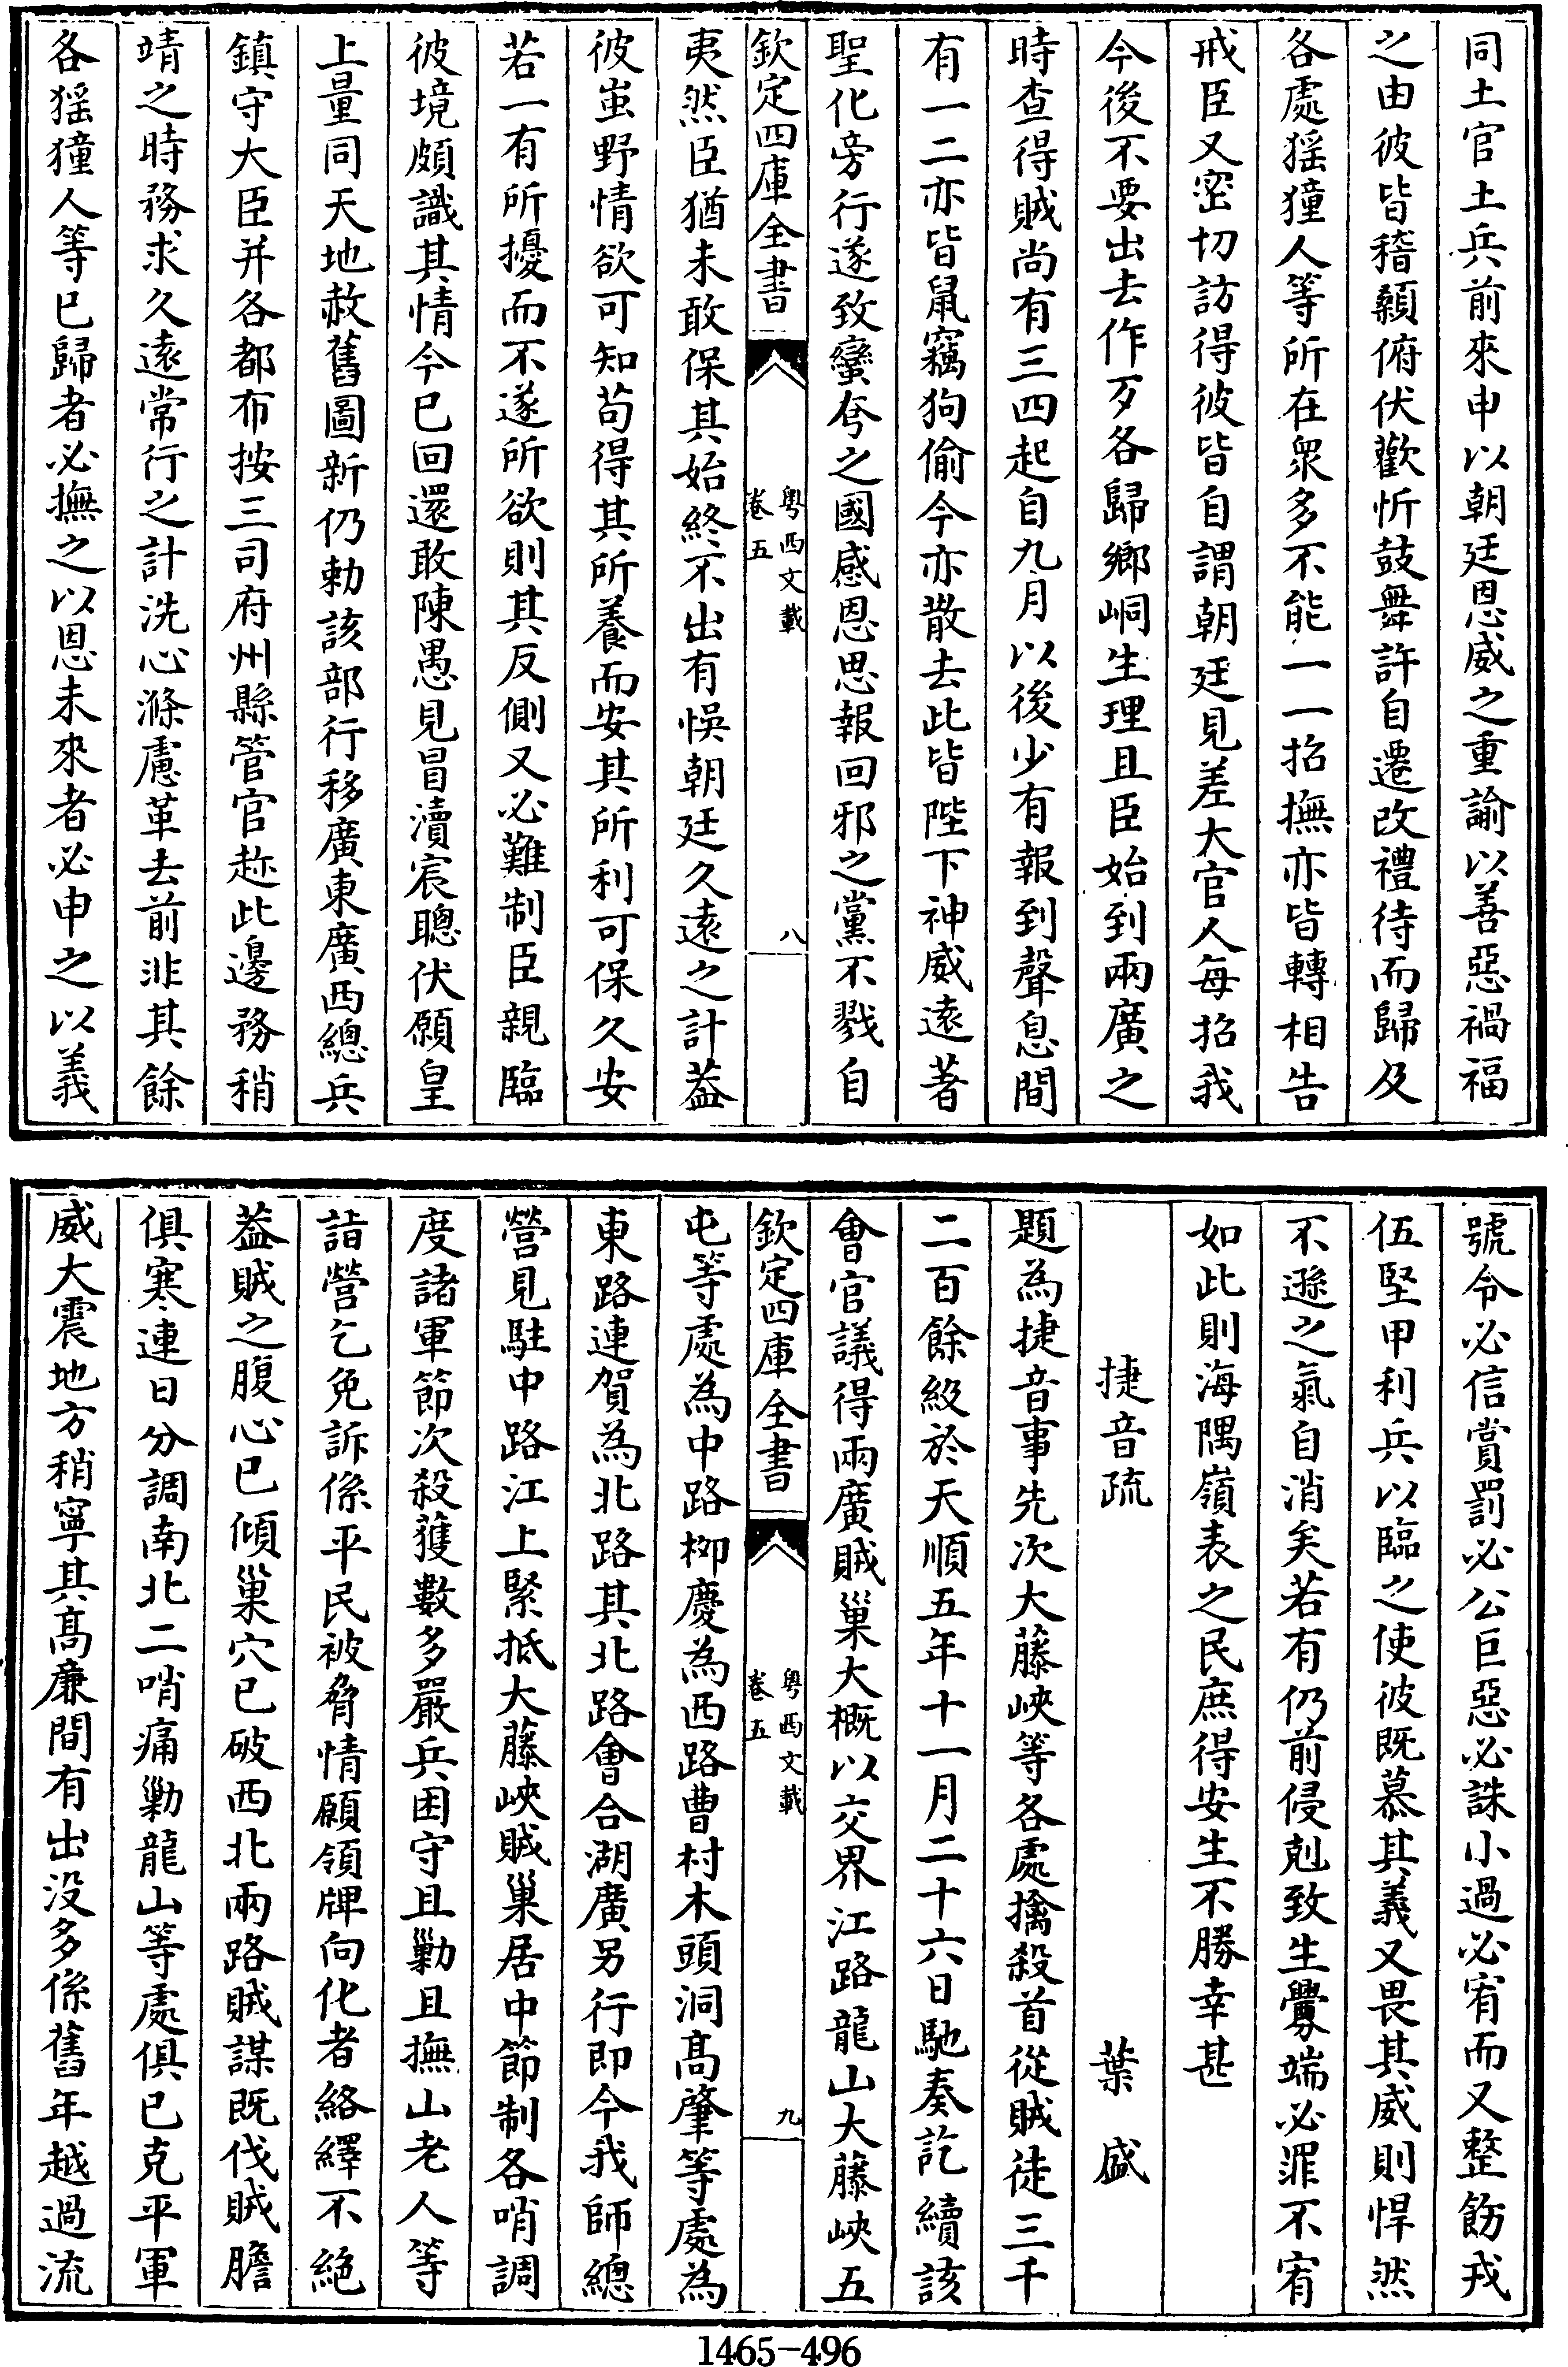 同土官土兵前來申以朝廷恩威之重諭以善惡禍福
之由彼皆稽顙俯伏歡忻鼓舞許自遷改禮待而歸及
各處猺獞人等所在衆多不能一一招撫亦皆轉相告
戒臣又密切訪得彼皆自謂朝廷見差大官人每招我
今後不要出去作歹各歸鄉峒生理且臣始到兩廣之
時查得賊尚有三四起自九月以後少有報到聲息間
有一二亦皆鼠竊狗偷今亦散去此皆陛下神威遠著
聖化旁行遂致蠻夸之國感恩思報回邪之黨不戮自
欽定四庫全書
粵西文載
卷五
八
夷然臣猶未敢保其始終不出有悞朝廷久遠之計葢
彼蚩野情欲可知苟得其所養而安其所利可保久安
若一有所擾而不遂所欲則其反側又必難制臣親臨
彼境頗識其情今已回還敢陳愚見冒瀆宸聰伏願皇
上量同天地赦舊圖新仍勅該部行移廣東廣西總兵
鎮守大臣并各都布按三司府州縣管官趂此邊務稍
靖之時務求久遠常行之計洗心滌慮革去前非其餘
各猺獞人等已歸者必撫之以恩未來者必申之以義
號令必信賞罰必公巨惡必誅小過必宥而又整飭戎
伍堅甲利兵以臨之使彼既慕其義又畏其威則悍然
不遜之氣自消矣若有仍前侵剋致生釁端必罪不宥
如此則海隅嶺表之民庶得安生不勝幸甚
捷音疏 葉盛
題為捷音事先次大藤峽等各處擒殺首從賊徒三千
二百餘級於天順五年十一月二十六日馳奏訖續該
會官議得兩廣賊巢大概以交界江路龍山大藤峽五
欽定四庫全書
粵西文載
卷五
九
屯等處為中路柳慶為西路曹村木頭洞高肇等處為
東路連賀為北路其北路會合湖廣另行即今我師總
營見駐中路江上緊抵大藤峽賊巢居中節制各哨調
度諸軍節次殺獲數多嚴兵困守且勦且撫山老人等
詣營乞免訴係平民被脅情願領牌向化者絡繹不絕
葢賊之腹心已傾巢穴已破西北兩路賊謀既伐賊膽
俱寒連日分調南北二哨痛勦龍山等處俱已克平軍
威大震地方稍寧其高廉間有出沒多係舊年越過流
1465-496